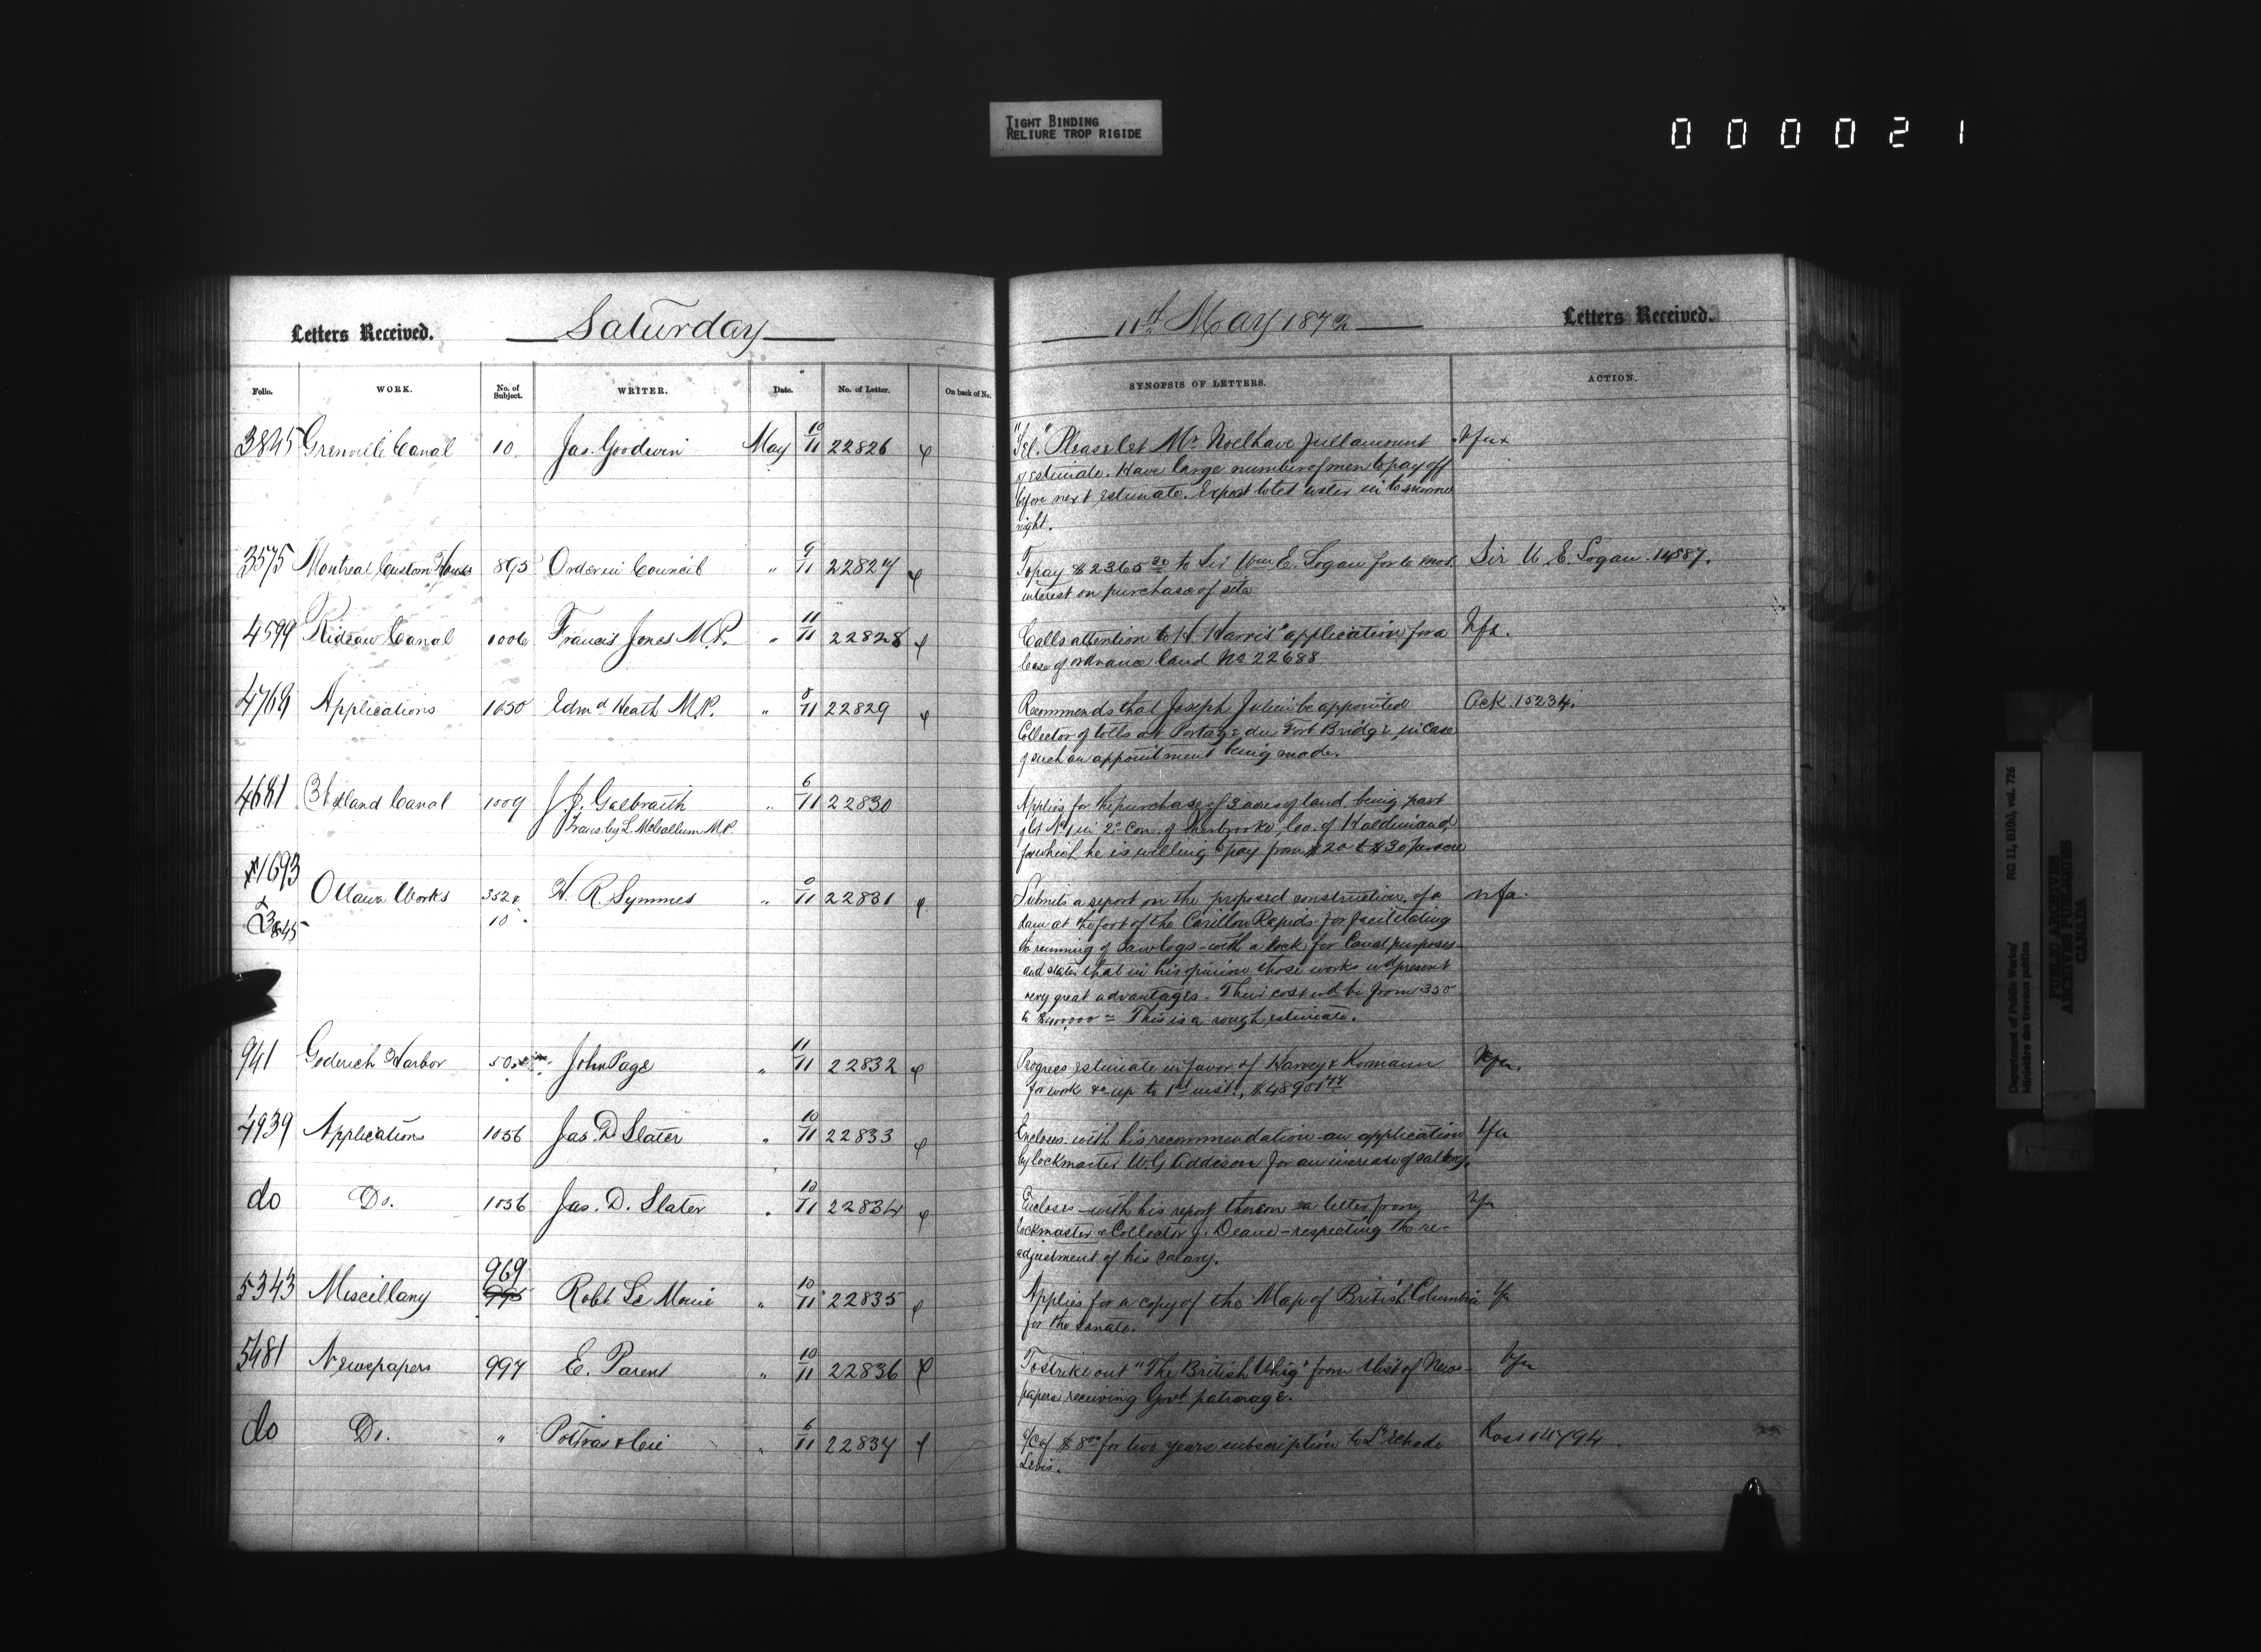 TIGHT BINDING
RELIURE TROP RIGIDE
000021
Letters Received. Saturday 11th May 1872 Letters Received.
Folio. WORK. No. of Subject. WRITER. Date. No. of Letter. On back of No. SYNOPSIS OF LETTERS. ACTION.
3845 Grenville Canal 10. Jas. Goodwin May 10/11 22826
"Tel." Please let Mr. Noel have full amount
of estimate. Have large number of men to pay off
before next estimate. Expect to let water in to morrow
night.
3575 Montreal Custom House 895 Order in Council " 9/11 22827
To pay $2365.20 to Sir Wm E. Logan for 6 mos. Sir W. E. Logan 14587.
interest on purchase of site
4599 Rideau Canal 1006 Francis Jones M.P. " 11/11 22828
Calls attention to H. Harris' application for a nfa.
lease of ordnance land No 22688
4769 Applications 1050 Edmd Heath M.P. " 8/11 22829
Recommends that Joseph Julien be appointed Ack. 15234.
Collector of tolls at Portage du Fort Bridge, in case
of such an appointment being made.
4681 Welland Canal 1009 J. J. Galbraith " 6/11 22830
Trans. by L. McCallum M.P.
Applies for the purchase of 3 acres of land being part
of lot No 1 in 2d Con. of Sherbrooke, Co. of Haldimand,
for which he is willing to pay from $20 to $30 per acre
1693
& 3845
Ottawa Works 352 & 10. H. R. Symmes " 22831
Submits a report on the proposed construction of a nfa.
dam at the foot of the Carillon Rapids for facilitating
the running of sawlogs - with a lock for Canal purposes -
and states that in his opinion those works wd present
very great advantages - Their cost wd be from 350
to $400,000 = This is a rough estimate.
941 Goderich Harbor John Page " 11/11 22832
Progress estimate in favor of Harvey & Kormann nfa.
for work &c up to 1st inst.,
4939 Applications 1056 Jas. D Slater " 10/11 22833
Encloses with his recommendation an application nfa
by lockmaster W. G Addison for an increase of salary.
do Do. 1056 Jas. D. Slater " 10/11 22834
Encloses - with his report thereon a letter from nfa
lockmaster & Collector J. Deane - respecting the re-
adjustment of his salary.
5343 Miscellany 969 Robt Le Moine " 10/11 22835
Applies for a copy of the Map of British Columbia nfa
for the Senate.
5481 Newspapers 997 E. Parent " 10/11 22836
To strike out "The British Whig" from list of News- nfa
papers receiving Govt patronage.
do Do. " Poitras & Cie " 6/11 22837
a/c of $8.00 for two years subscription to L'Echo de Ross 14794.
Levis.
Department of Public Works/ RG 11, B1(b), vol. 726
Ministère des travaux publics
PUBLIC ARCHIVES
ARCHIVES PUBLIQUES
CANADA